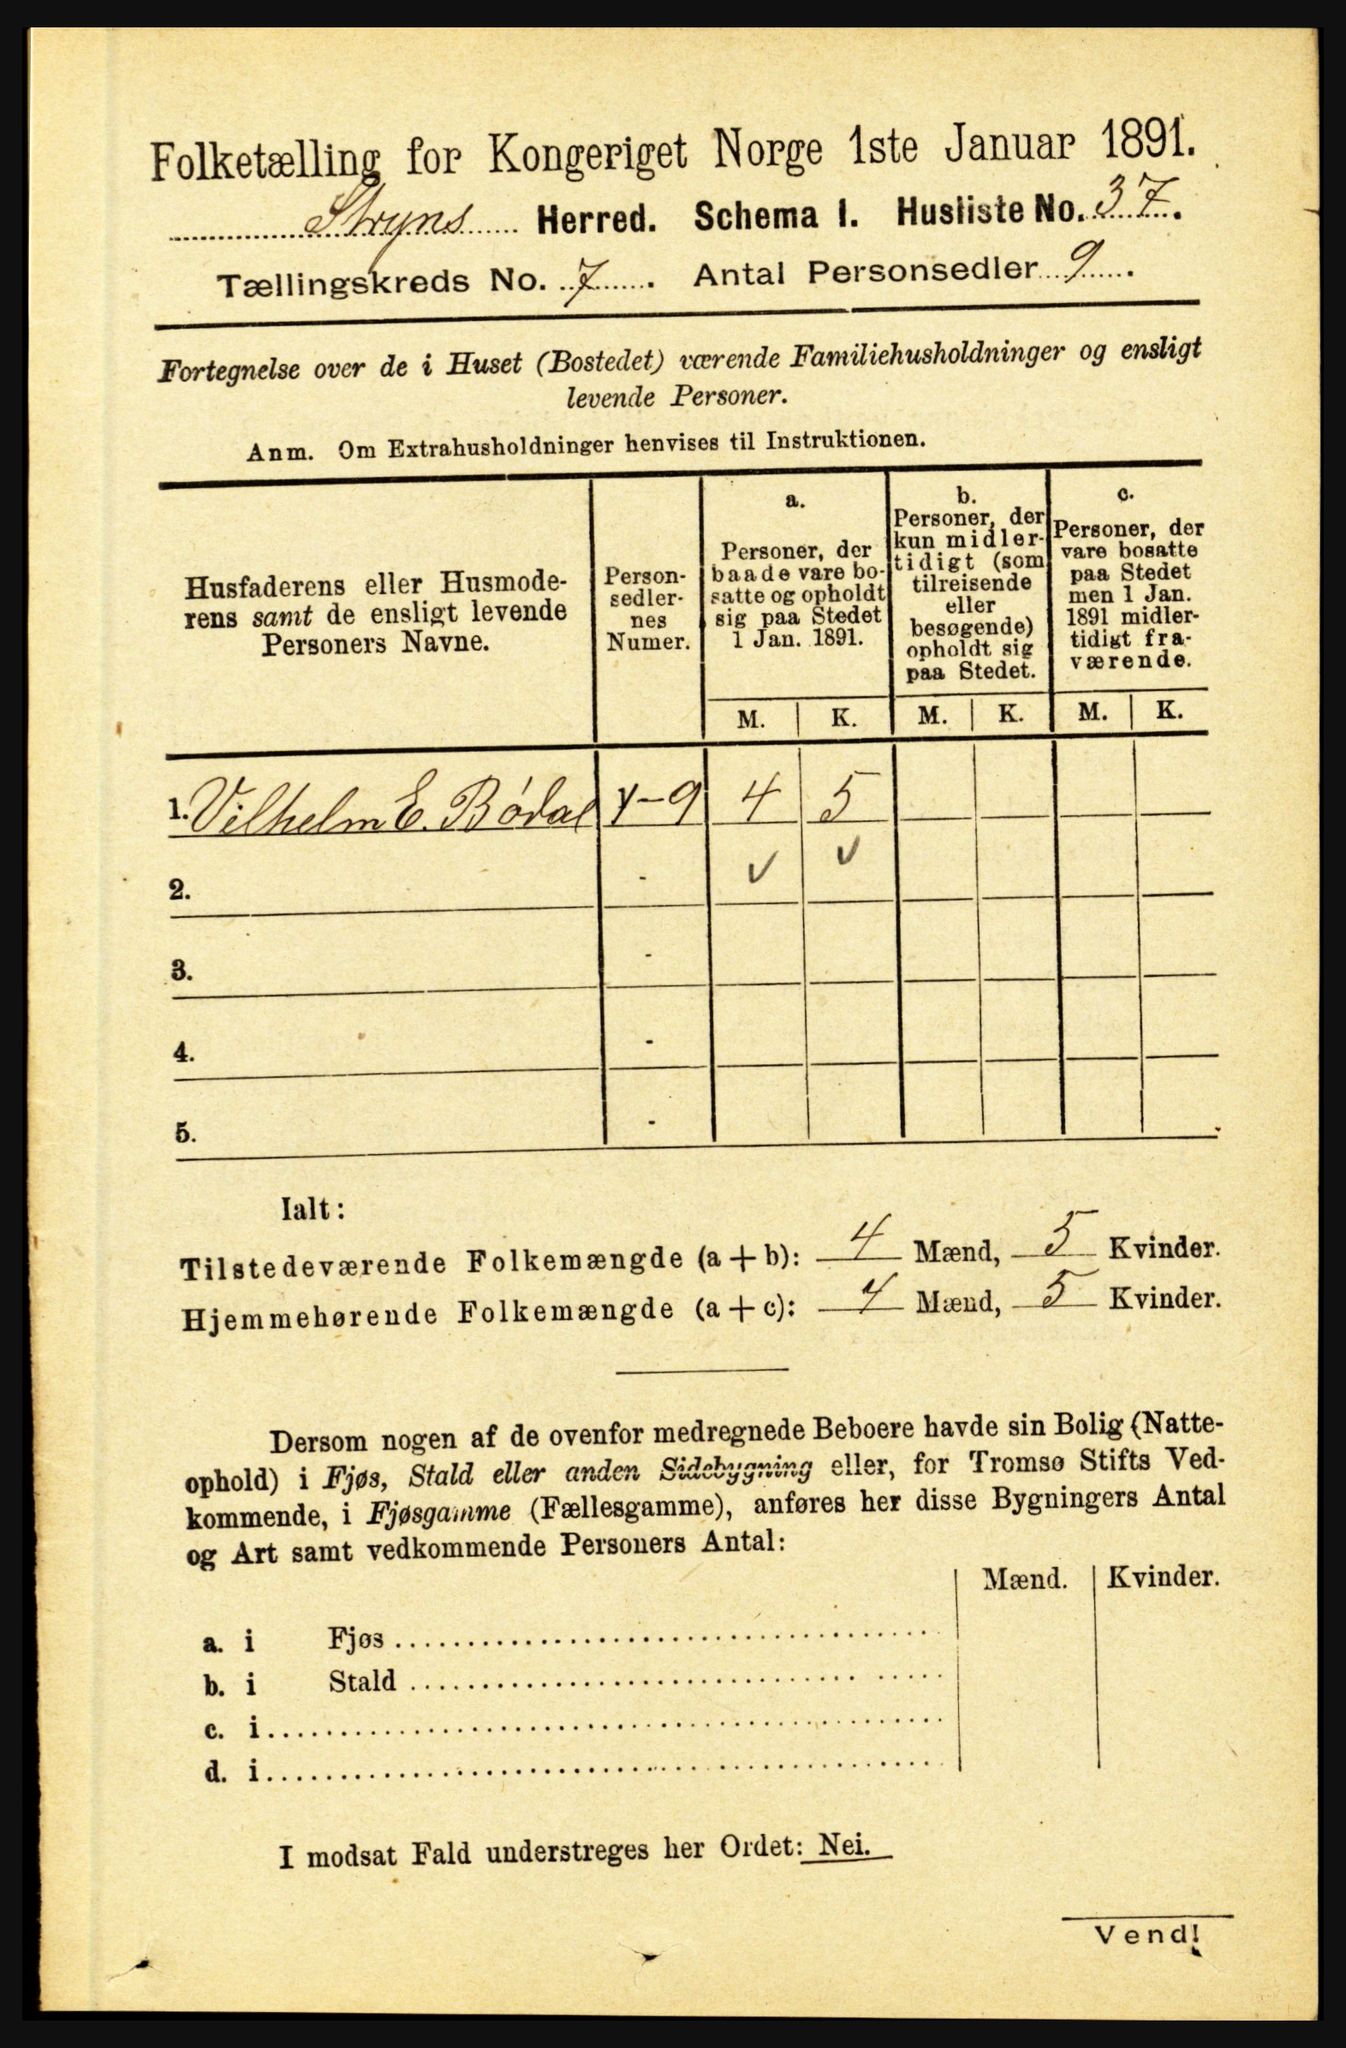 Folketælling for Kongeriget Norge 1ste Januar 1891.
Stryns Herred. Schema I. Husliste No. 37.
Tællingskreds No. 7. Antal Personsedler 9.
Fortegnelse over de i Huset (Bostedet) værende Familiehusholdninger og ensligt
levende Personer.
Anm. Om Extrahusholdninger henvises til Instruktionen.
Husfaderens eller Husmode-
rens samt de ensligt levende
Personers Navne.
Person-
sedler-
nes
Numer.
a.
Personer, der
baade vare bo-
satte og opholdt
sig paa Stedet
1 Jan. 1891.
b.
Personer, der
kun midler-
tidigt (som
tilreisende
eller
besøgende)
opholdt sig
paa Stedet.
c.
Personer, der
vare bosatte
paa Stedet
men 1 Jan.
1891 midler-
tidigt fra-
værende.
M. K. M. K. M. K.
1. Vilhelm E. Bødal 1-9 4 5
2. - v v
3. -
4. -
5. -
Ialt:
Tilstedeværende Folkemængde (a+b): 4 Mænd, 5 Kvinder.
Hjemmehørende Folkemængde (a+c): 4 Mænd, 5 Kvinder.
Dersom nogen af de ovenfor medregnede Beboere havde sin Bolig (Natte-
ophold) i Fjøs, Stald eller anden Sidebygning eller, for Tromsø Stifts Ved-
kommende, i Fjøsgamme (Fællesgamme), anføres her disse Bygningers Antal
og Art samt vedkommende Personers Antal:
Mænd. Kvinder.
a. i Fjøs
b. i Stald
c. i
d. i
I modsat Fald understreges her Ordet: Nei.
Vend!